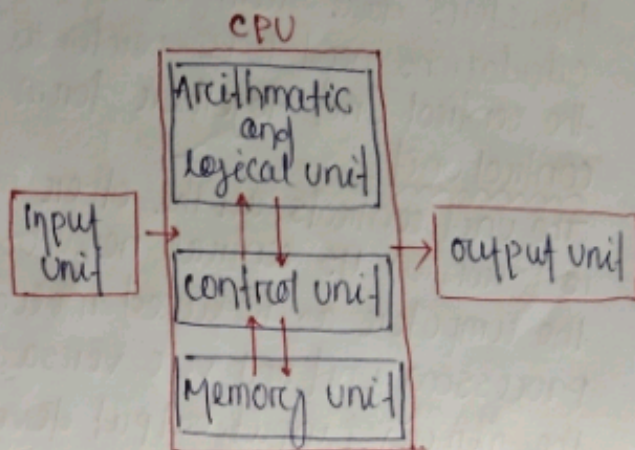 CPU
Arcithmatic
and
Logical unit
Input
unit
control unit
output unit
Memory unit